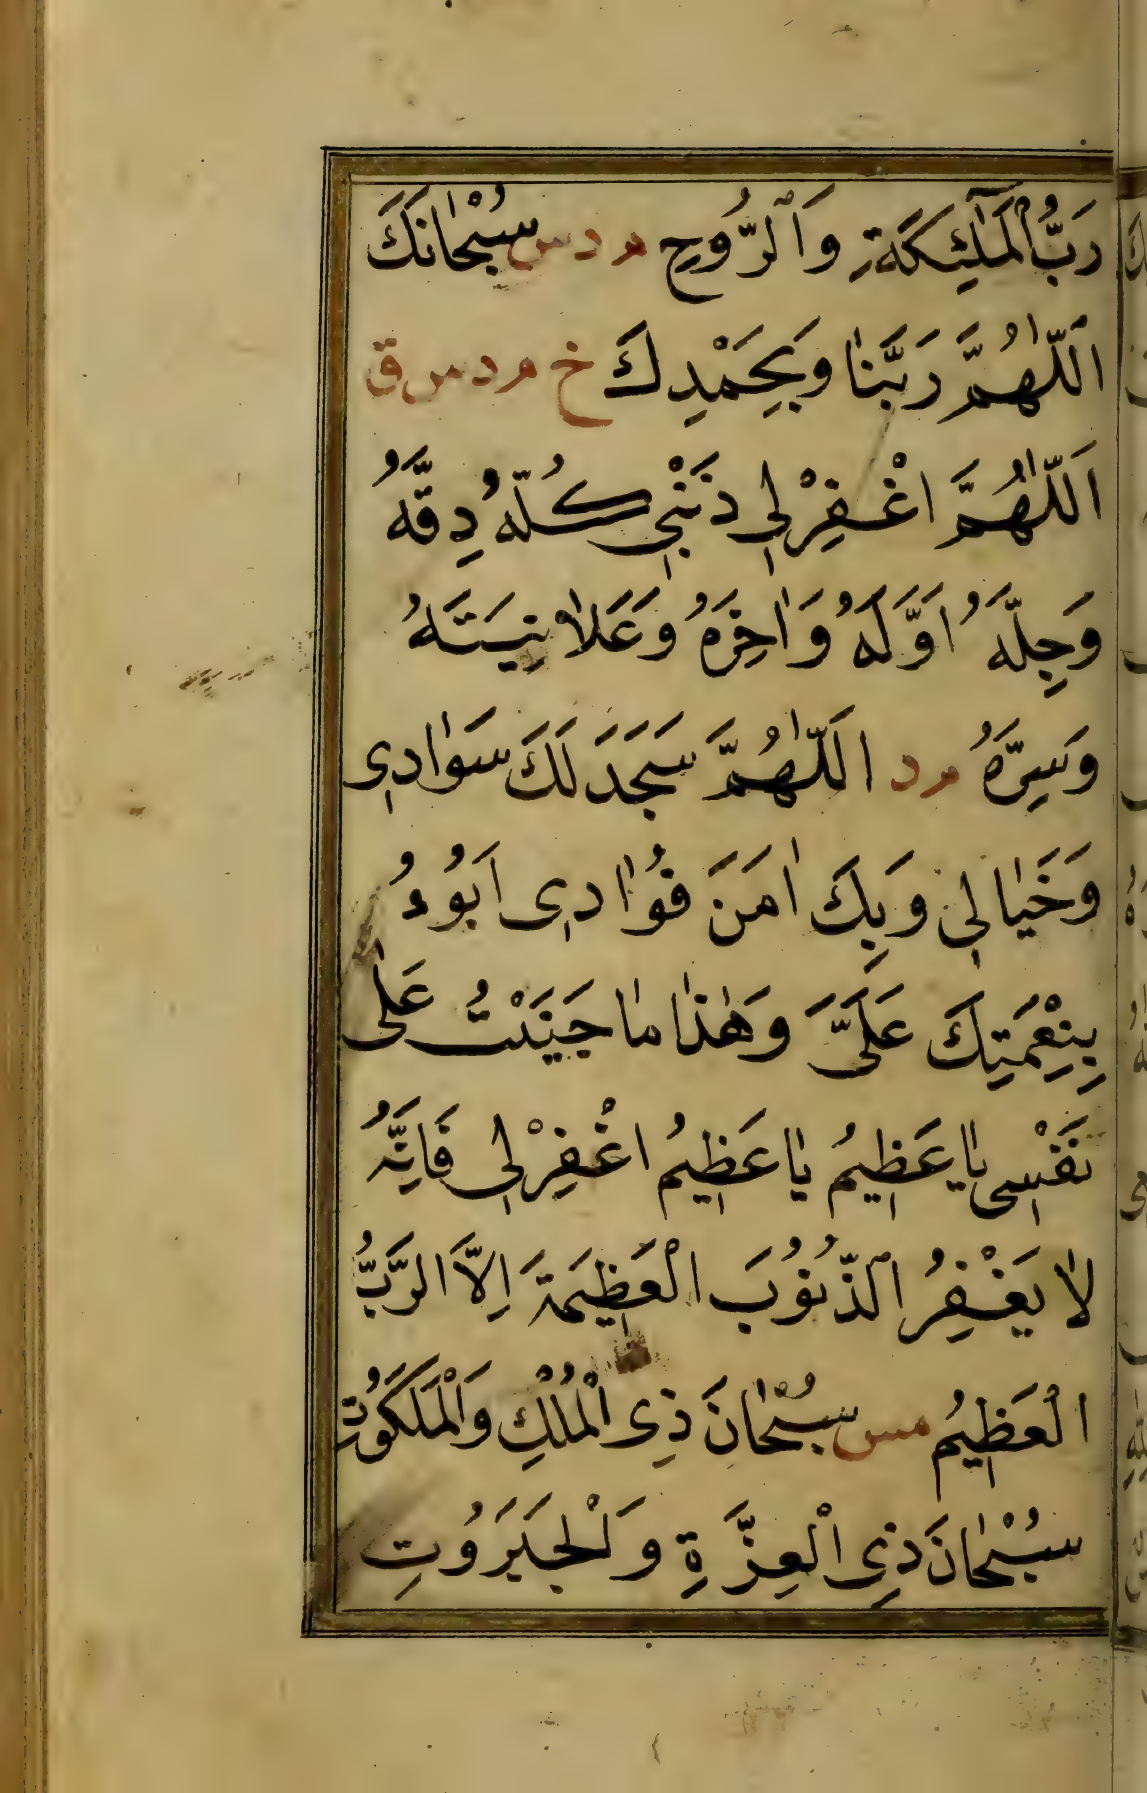 رَبُّ الْمَلٰٓئِكَةِ وَالرُّوحِ م د س سُبْحٰانَكَ
اَللّٰهُمَّ رَبَّنٰا وَبِحَمْدِكَ خ م د س ق
اَللّٰهُمَّ اغْفِرْ لِي ذَنْبِي كُلَّهُ دِقَّهُ
وَجِلَّهُ اَوَّلَهُ وَاٰخِرَهُ وَعَلاٰنِيَتَهُ
وَسِرَّهُ م د اَللّٰهُمَّ سَجَدَ لَكَ سَوٰادِي
وَخَيٰالِي وَبِكَ اٰمَنَ فُؤٰادِي اَبُوءُ
بِنِعْمَتِكَ عَلَيَّ وَهٰذٰا مٰا جَنَيْتُ عَلٰى
نَفْسِي يٰا عَظِيمُ يٰا عَظِيمُ اغْفِرْ لِي فَاِنَّهُ
لاٰ يَغْفِرُ الذُّنُوبَ الْعَظِيمَةَ اِلاَّ الرَّبُّ
الْعَظِيمُ مس سُبْحٰانَ ذِي الْمُلْكِ وَالْمَلَكُوتِ
سُبْحٰانَ ذِي الْعِزَّةِ وَالْجَبَرُوتِ